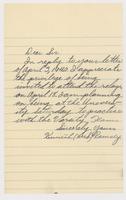 Dear Sir
In reply to your letter
of April 3, 1943. I appreciate
the privilege of being
invited to attend the relays
on April 18. I am planning
on being at the University
Saturday to practice
with the Varsity Team.
Sincerely Yours
Kenneth